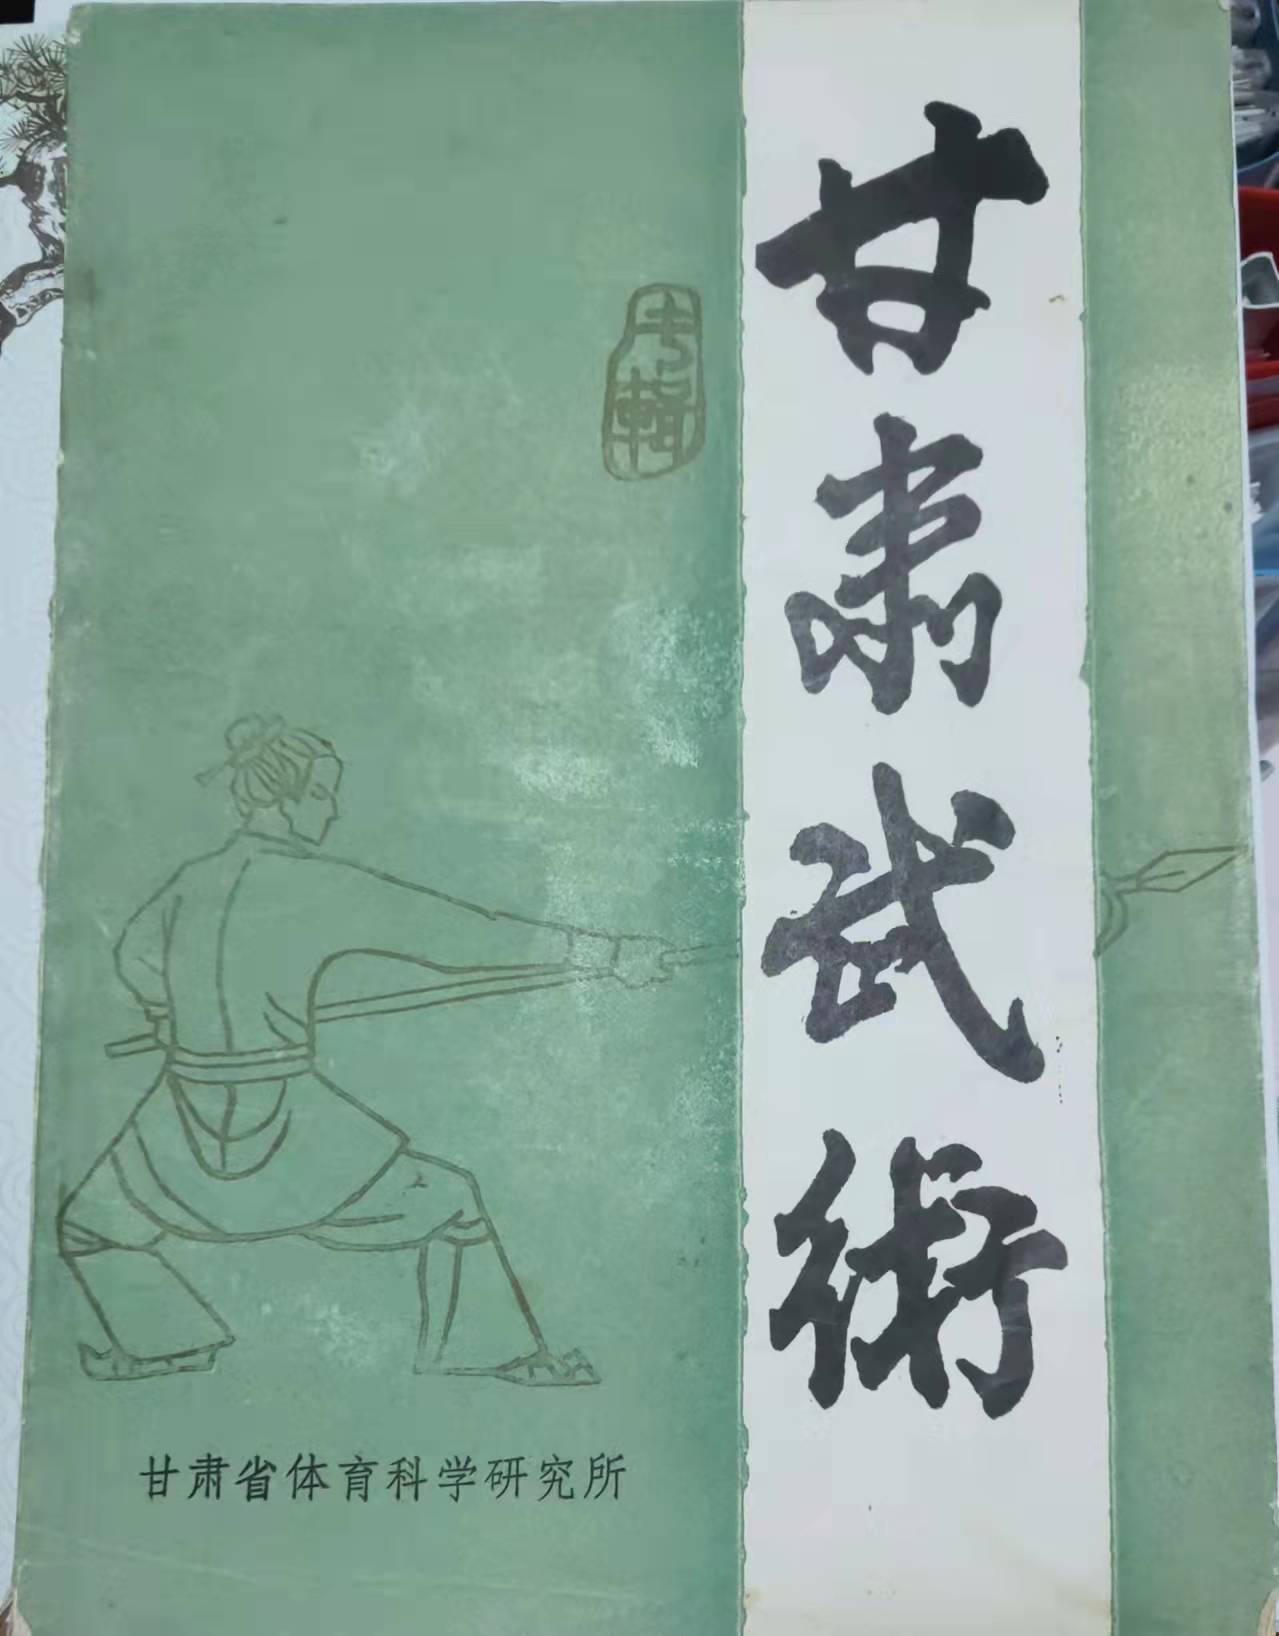 甘肃武術
专辑
甘肃省体育科学研究所